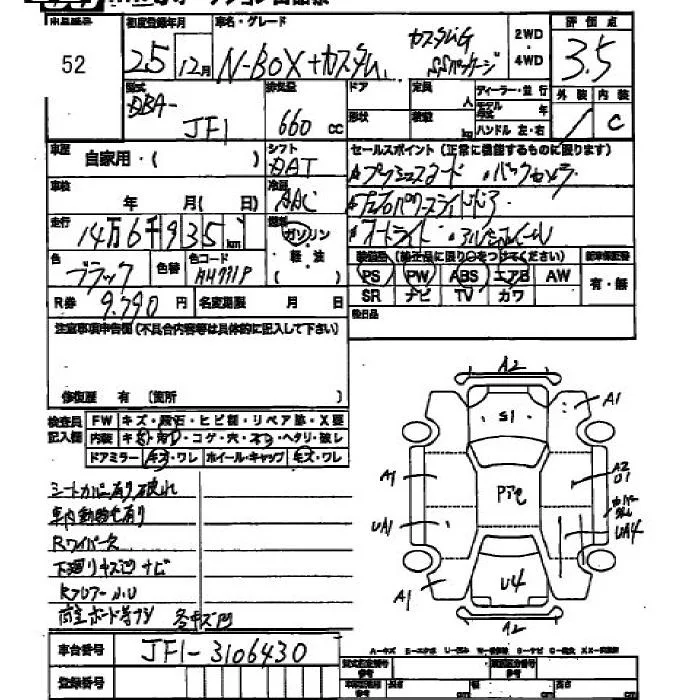 出品番号 初度登録年月 車名・グレード 評価点
52 25 12月 N-BOX+カスタム カスタムG SSパッケージ 2WD・4WD 3.5
型式 排気量 ドア 定員 人 ディーラー・並行 外装 内装
DBA-JF1 660 cc 形状 積載 kg モデル年式 年 C
ハンドル 左・右
車歴 自家用・( ) シフト セールスポイント(正常に機能するものに限ります)
プッシュスタート ・バックカメラ
車検 年 月( 日) 冷房 AAC
走行 14万6千935km 燃料 ガソリン・軽・油 ( )
オートライト ・アルミホイール
色 ブラック 色替 色コード
装備品(純正品に限り○をつけてください) 新車保証書
PS PW ABS エアB AW 有・無
SR ナビ TV カワ
R券 9,790円 名変期限 月 日 後日品
注意事項申告欄(不具合内容等は具体的に記入して下さい)
修復歴 有 (箇所 )
検査員記入欄 FW キズ・飛石・ヒビ割・リペア跡・X要
内装 ・コゲ・穴・ ・ヘタリ・破レ
ドアミラー キズ・ワレ ホイール・キャップ キズ・ワレ
シートカバー有り 破れ
Rワイパー欠
下廻りキズ凹 ナビ
各キズ凹
A2
A1
S1
A1
A2
UA1
UA4
A1
U4
A2
車台番号 JF1-3106430
登録番号